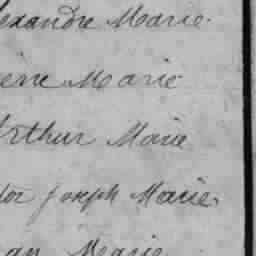 exandre Marie.
ène Marie
Arthur Marie
dor Joseph Marie.
an Marie